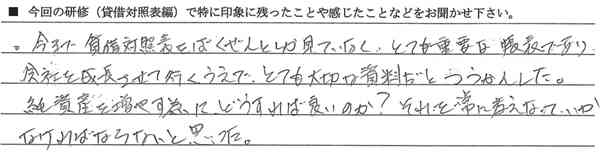 ■ 今回の研修（貸借対照表編）で特に印象に残ったことや感じたことなどをお聞かせ下さい。
。今まで貸借対照表をばくぜんとしか見ていなく、とても重要な帳表であり
会社を成長させて行くうえで、とても大切な資料だとつうかんした。
純資産を増やす為に、どうすれば良いのか？それを常に考えなっていか
なければならないと思った。